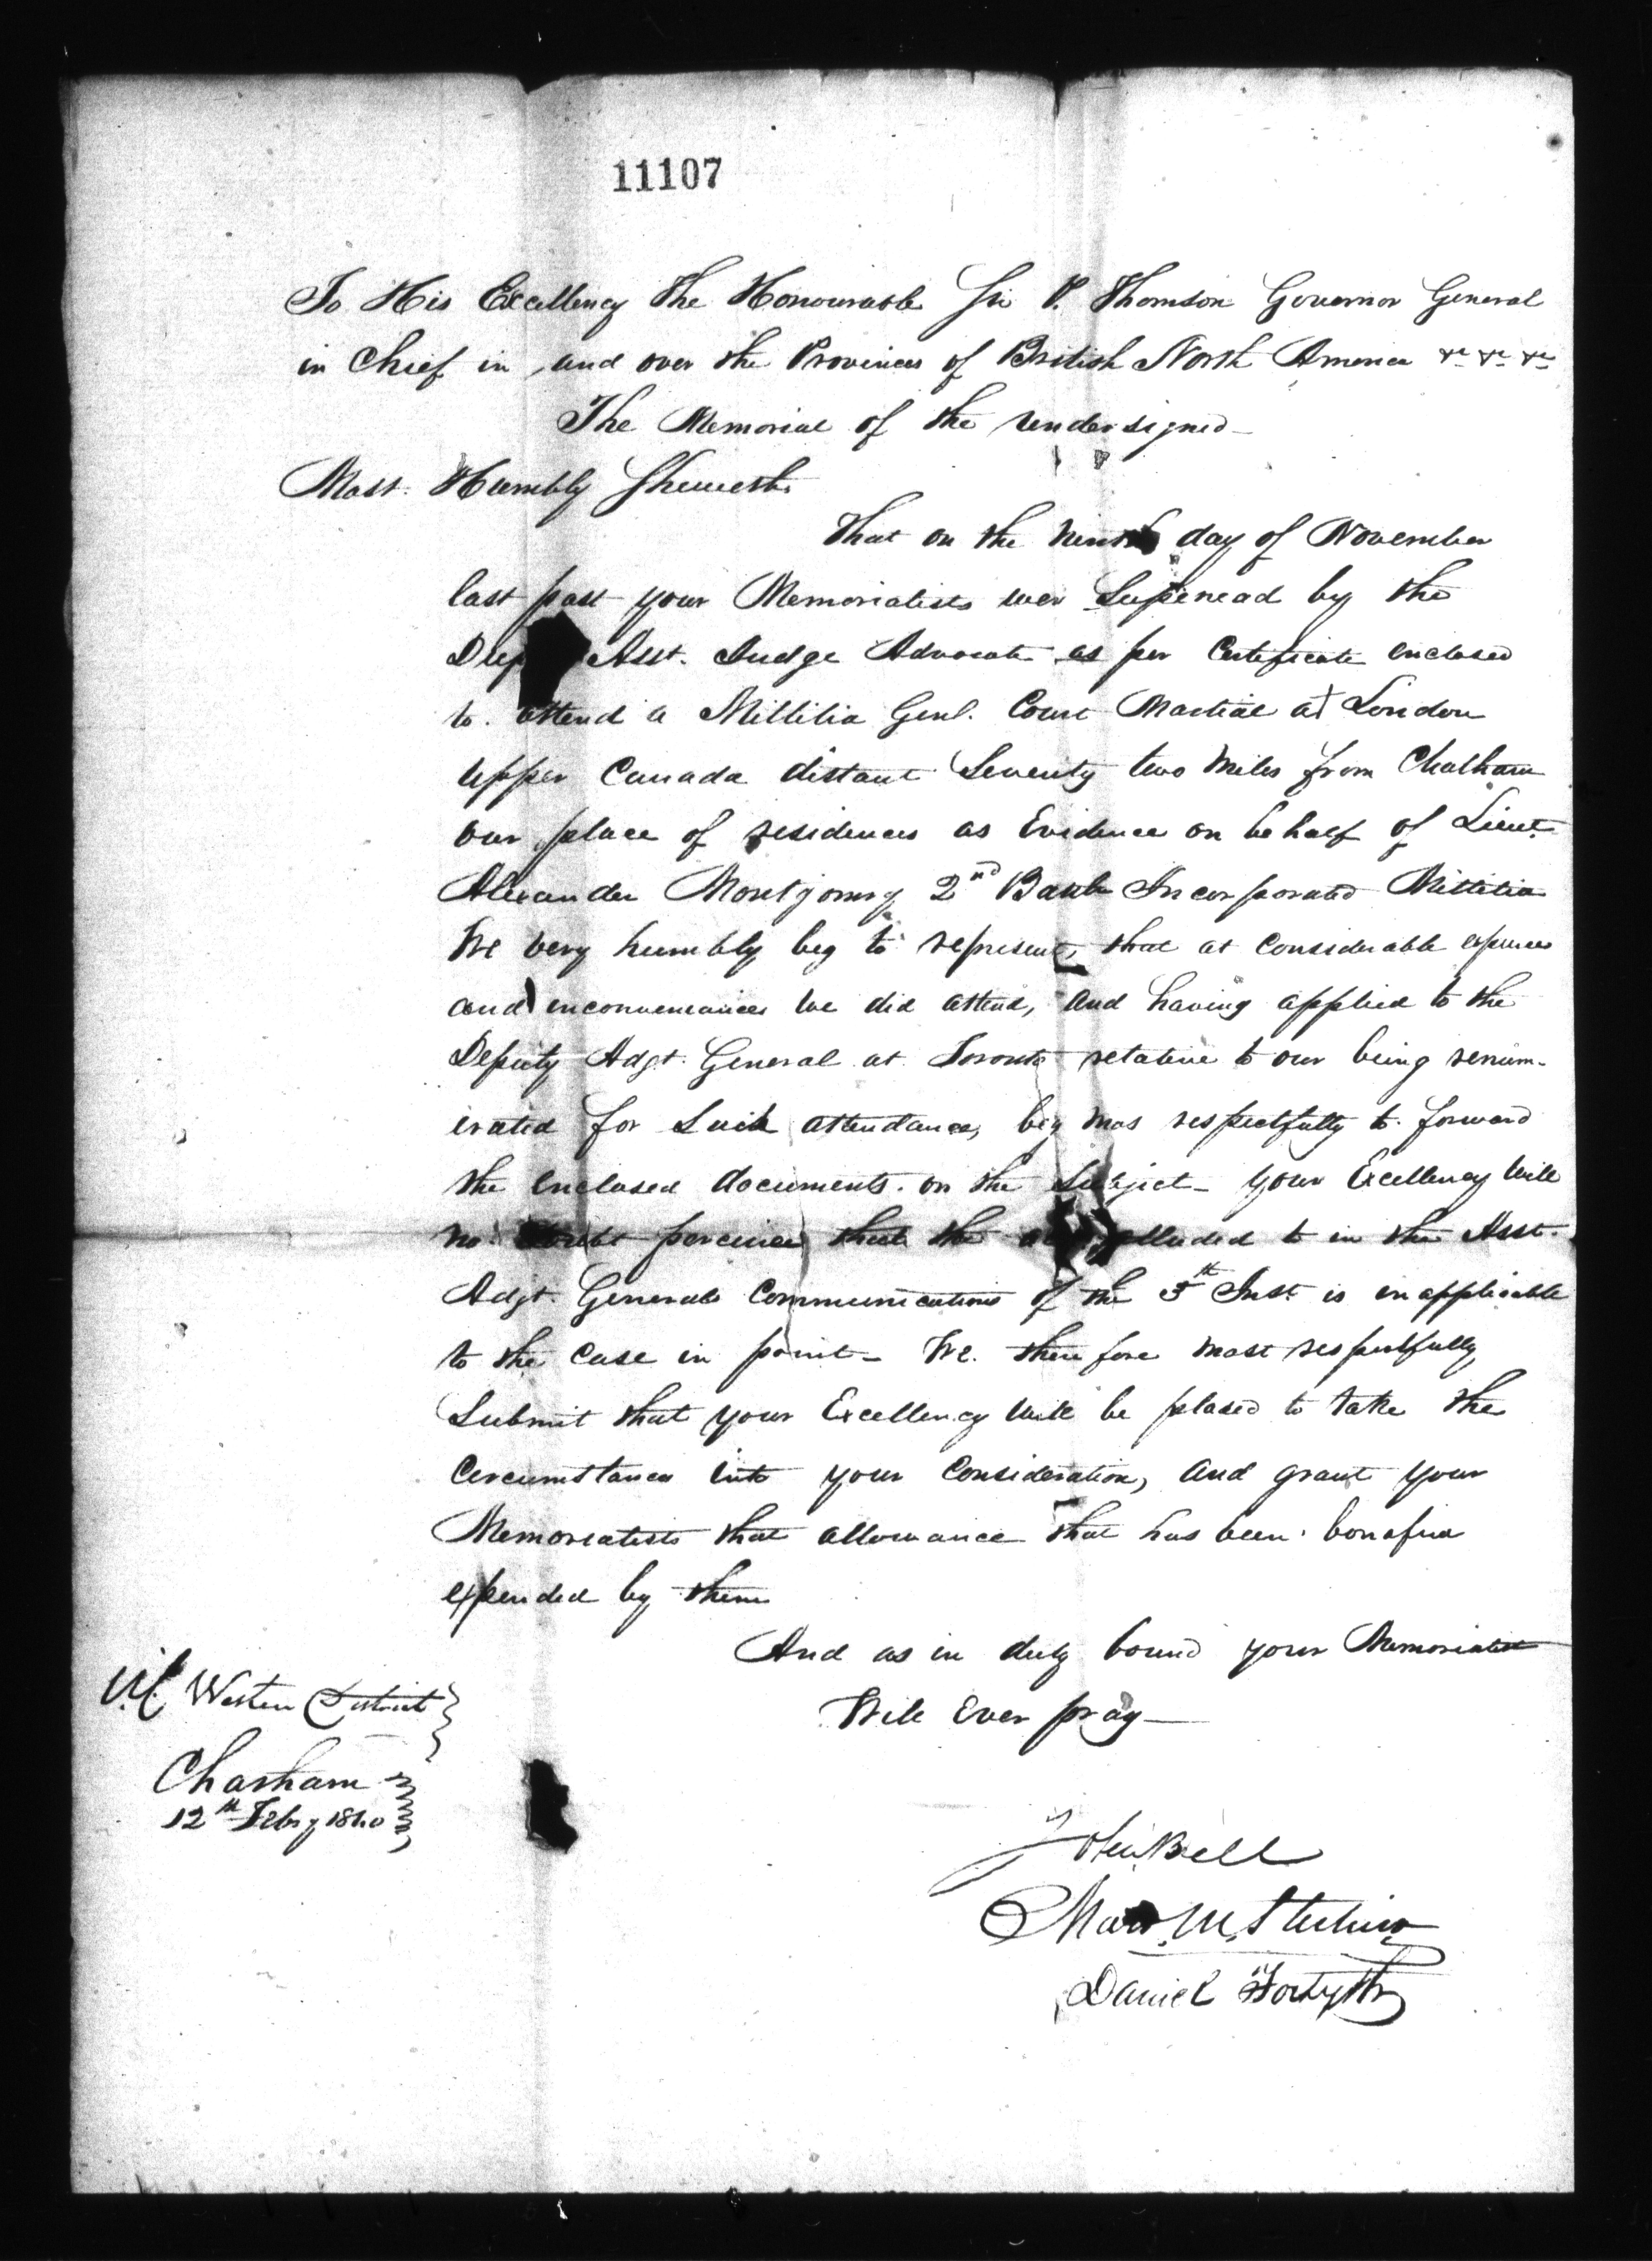 11107
To His Excellency The Honourable Sir P. Thomson Governor General
in Chief in and over the Provinces of British North America &c &c &c
The Memorial of the undersigned
Most Humbly Sheweth
That on the ninth day of November
last past your Memorialists wer Supenead by the
Dep Asst. Judge Advocate as per Certificate enclosed
to attend a Millitia Genl. Court Martial at London
Upper Canada distant Seventy two Miles from Chatham
our place of residences as Evidence on behalf of Lieut.
Alexander Montgomry 2nd Battn Incorporated Millitia
We very humbly beg to represent, that at Considerable expences
and inconveniances we did attend, and having applied to the
Deputy Adgt. General at Toronto relative to our being renum-
erated for Such attendance, beg mos respectfully to forward
the enclosed documents on the Subject- your Excellency Will
no doubt perceive that the alluded to in the Asst.
Adgt. Generals Communications of the 5th Inst. is inapplicable
to the Case in point- We. therefore most respectfully
Submit that your Excellency Will be plased to take the
Circumstances into your Consideration, and grant your
Memorialists that allowance that has been bonafid
expended by them
And as in duty bound your Memorialists
Will Ever pray—
Western District
Chatham
12th Febry 1840
John Bell
Daniel Forsyth